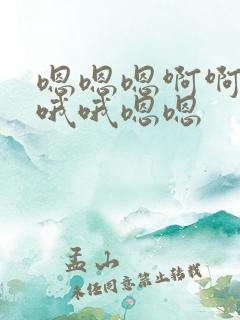 嗯嗯嗯啊啊
哦哦嗯嗯
孟山
未经同意禁止转载